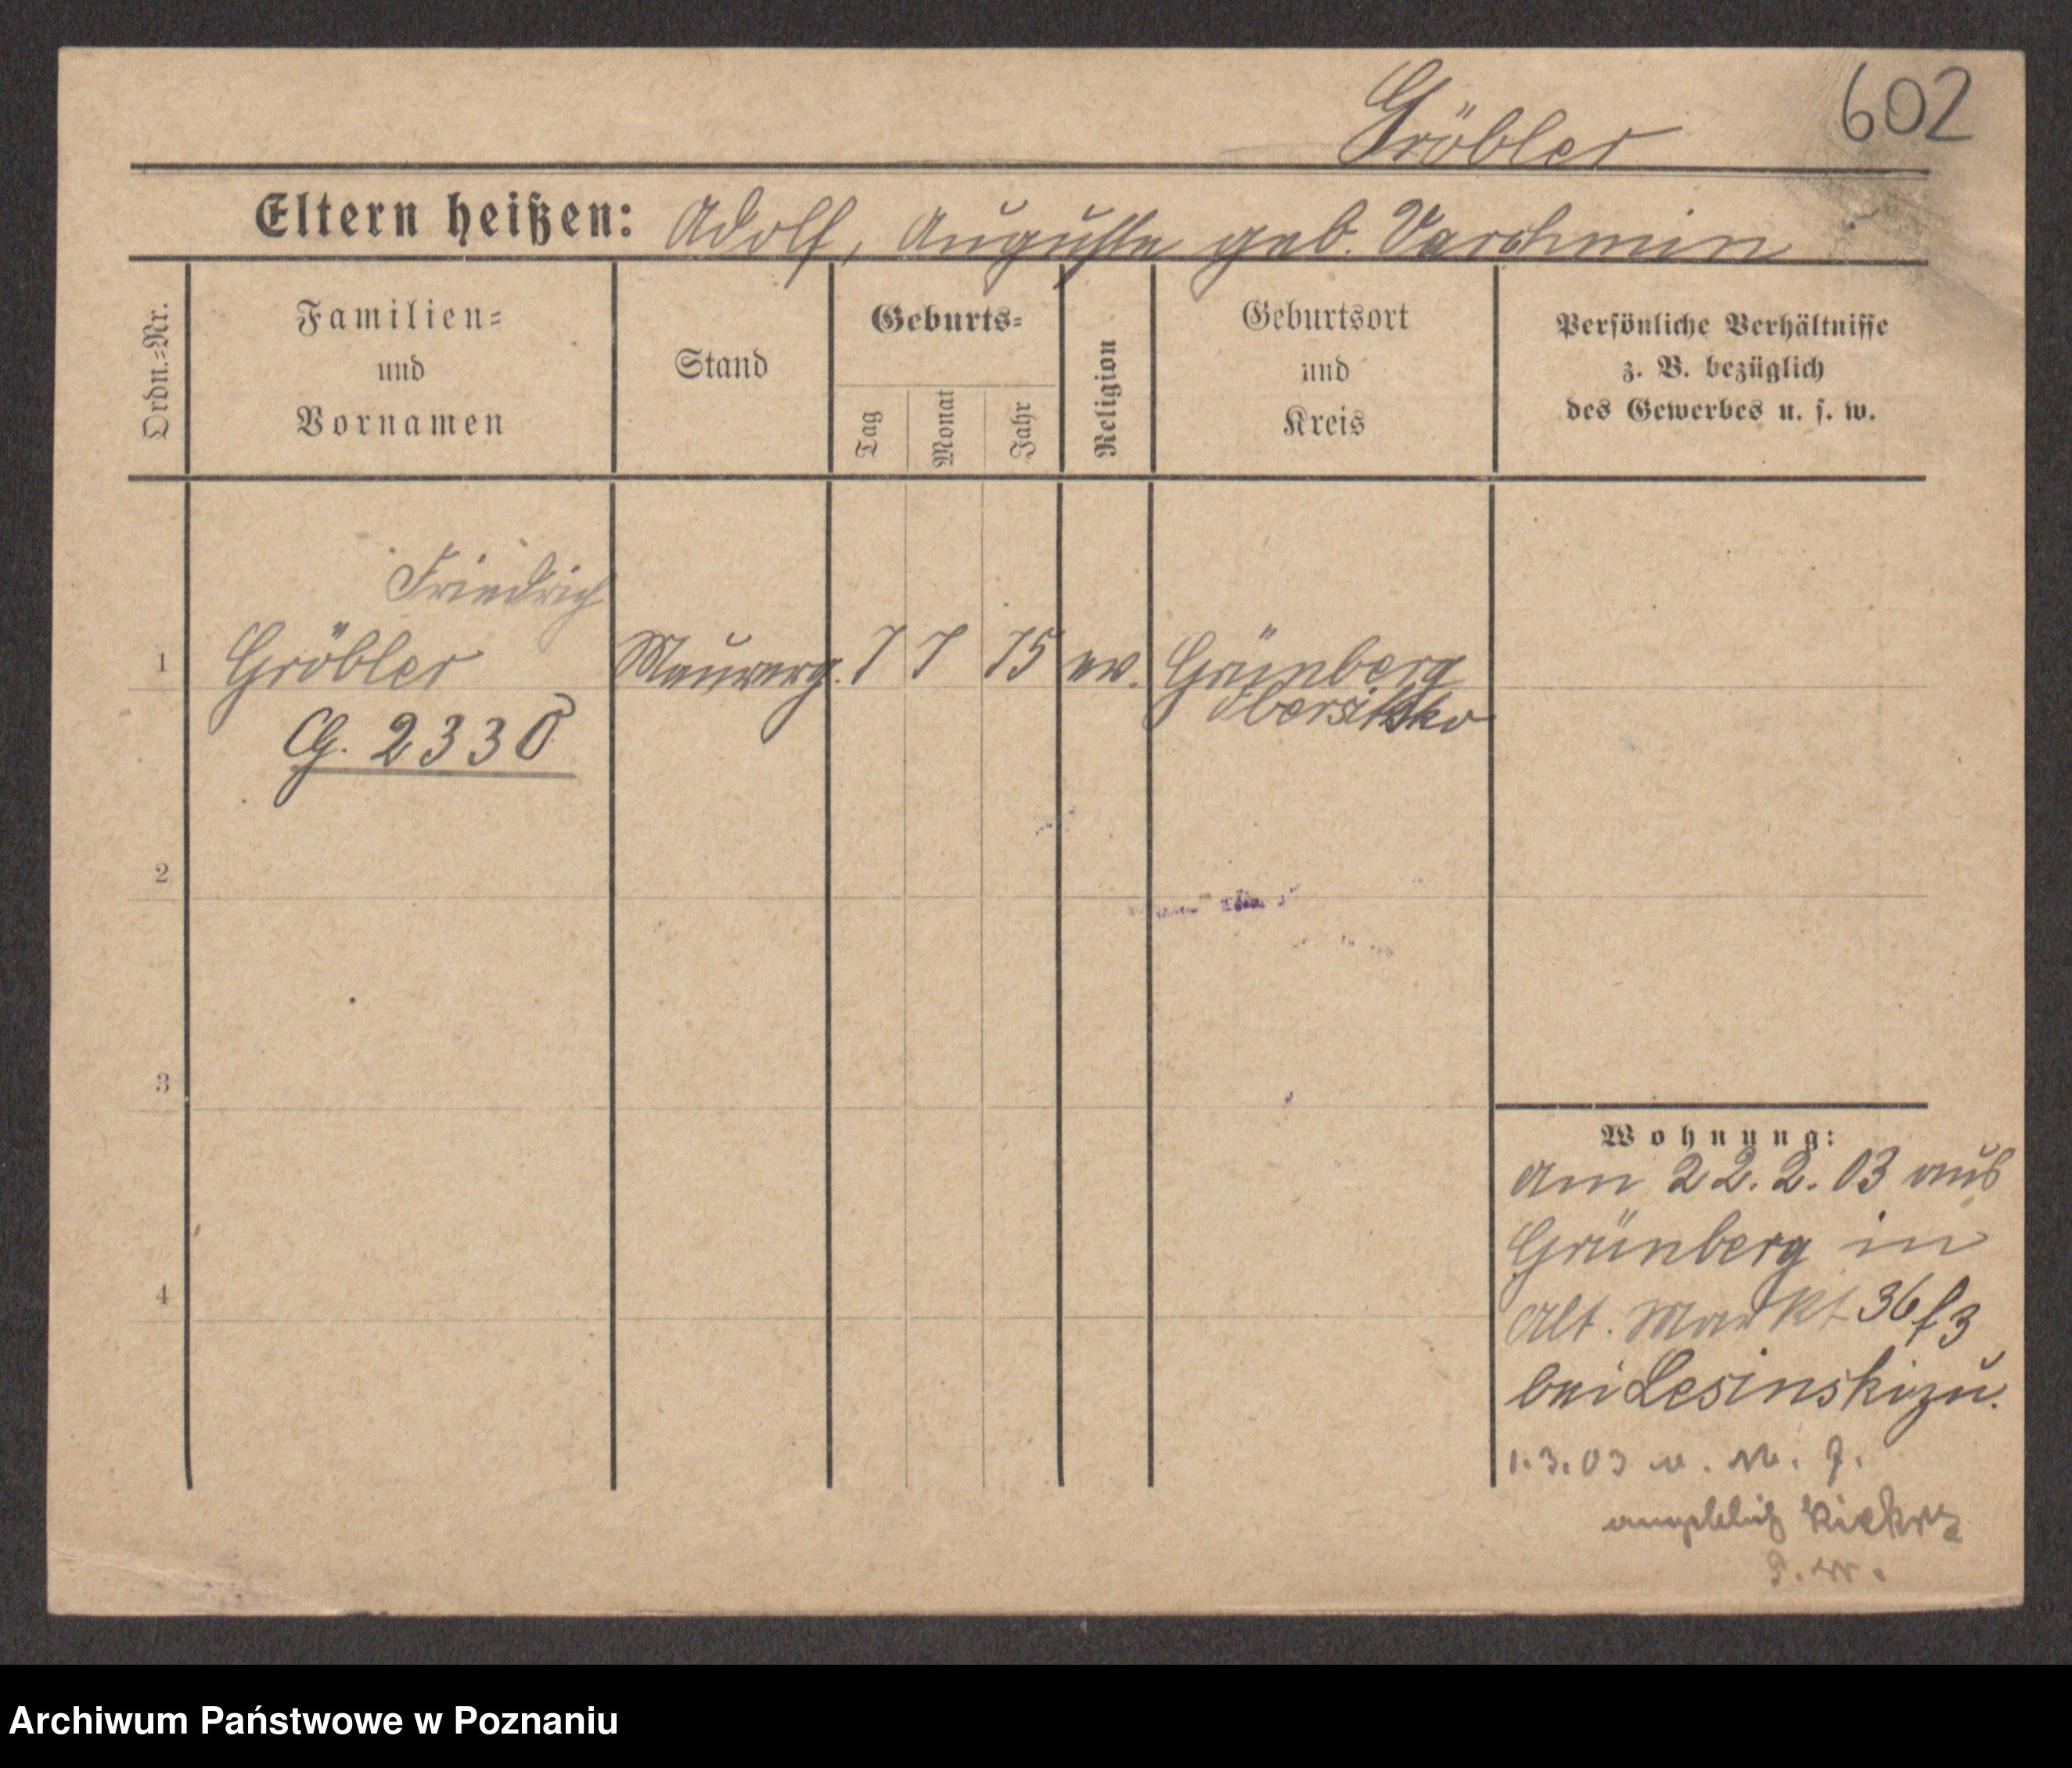 Gröbler
602
Eltern heißen: Adolf, Auguste geb. Varchmin
Ordn.-Nr.
Familien-
und
Vornamen
Stand
Geburts-
Tag
Monat
Jahr
Religion
Geburtsort
und
Kreis
Persönliche Verhältnisse
z. B. bezüglich
des Gewerbes u. s. w.
Friedrich
1 Gröbler Maurerg. 7 7 75 ev. Grünberg
Obersitzko
G. 2330
2
3
4
Wohnung:
am 22.2.03 aus
Grünberg in
Alt. Markt 36
bei Lesinski zu.
1.3.03
angeblich Kiekrz
Archiwum Państwowe w Poznaniu